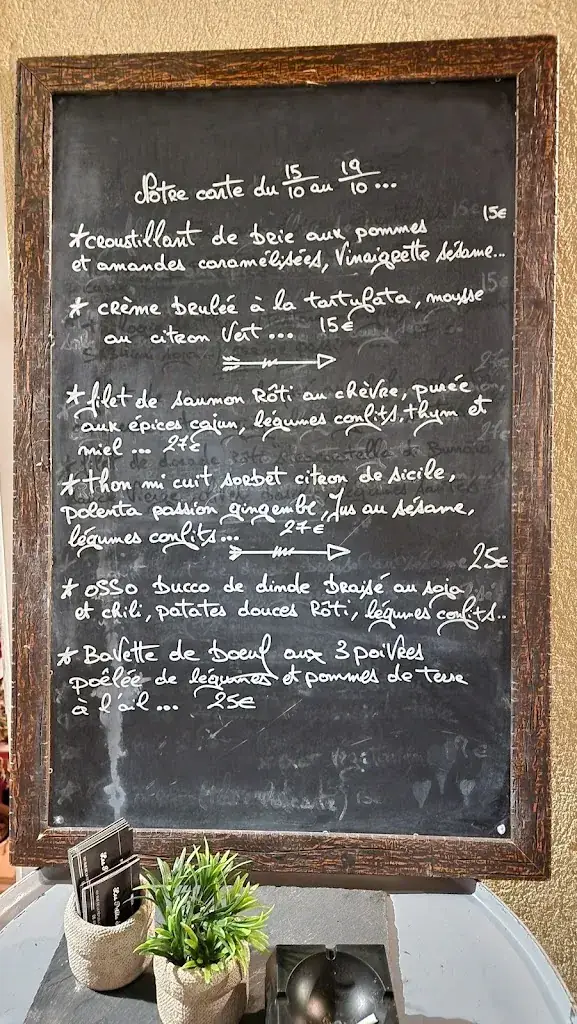 Notre carte du 15/10 au 19/10 ...
15€
* croustillant de brie aux pommes
et amandes caramélisées, Vinaigrette sésame...
* crème brulée à la tartufata, mousse
au citron Vert ... 15€
* filet de saumon Rôti au chèvre, purée
aux épices cajun, légumes confits, thym et
miel ... 27€
* thon mi cuit sorbet citron de sicile,
polenta passion gingembre, Jus au sésame,
légumes confits... 27€
25€
* osso bucco de dinde braisé au soja
et chili, patates douces Rôti, légumes confits..
* Bavette de boeuf aux 3 poivres
poêlée de légumes et pommes de terre
à l'ail ... 25€